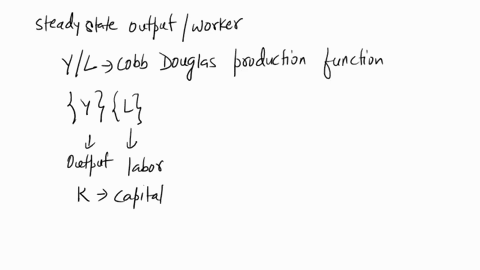 steady state output/worker
Y/L → Cobb Douglas production function
{Y} {L}
↓ ↓
Output labor
K → Capital